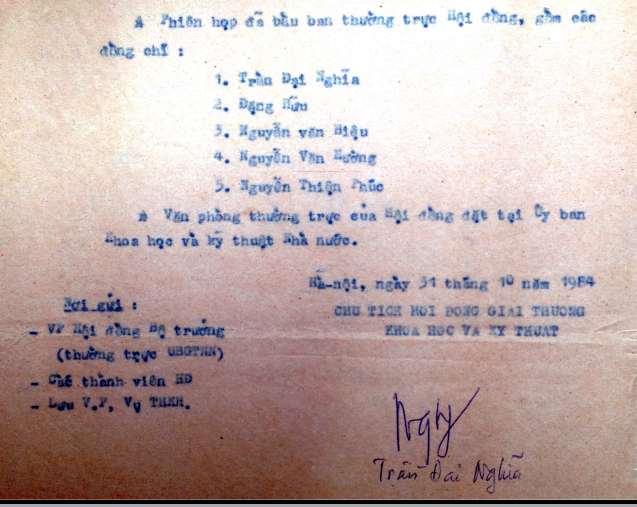 * Phiên họp đã bầu ban thường trực Hội đồng, gồm các
đồng chí :
1. Trần Đại Nghĩa
2. Đặng Hữu
3. Nguyễn văn Hiệu
4. Nguyễn Văn Hường
5. Nguyễn Thiện Phúc
* Văn phòng thường trực của Hội đồng đặt tại Ủy ban
Khoa học và kỹ thuật Nhà nước.
Hà-nội, ngày 31 tháng 10 năm 1984
CHU TICH HOI DONG GIAI THUONG
KHOA HOC VA KY THUAT
Nơi gửi :
- VP Hội đồng Bộ trưởng
(thường trực UBGTNN)
- Các thành viên HĐ
- Lưu V.P, Vụ THKH.
Trần Đại Nghĩa